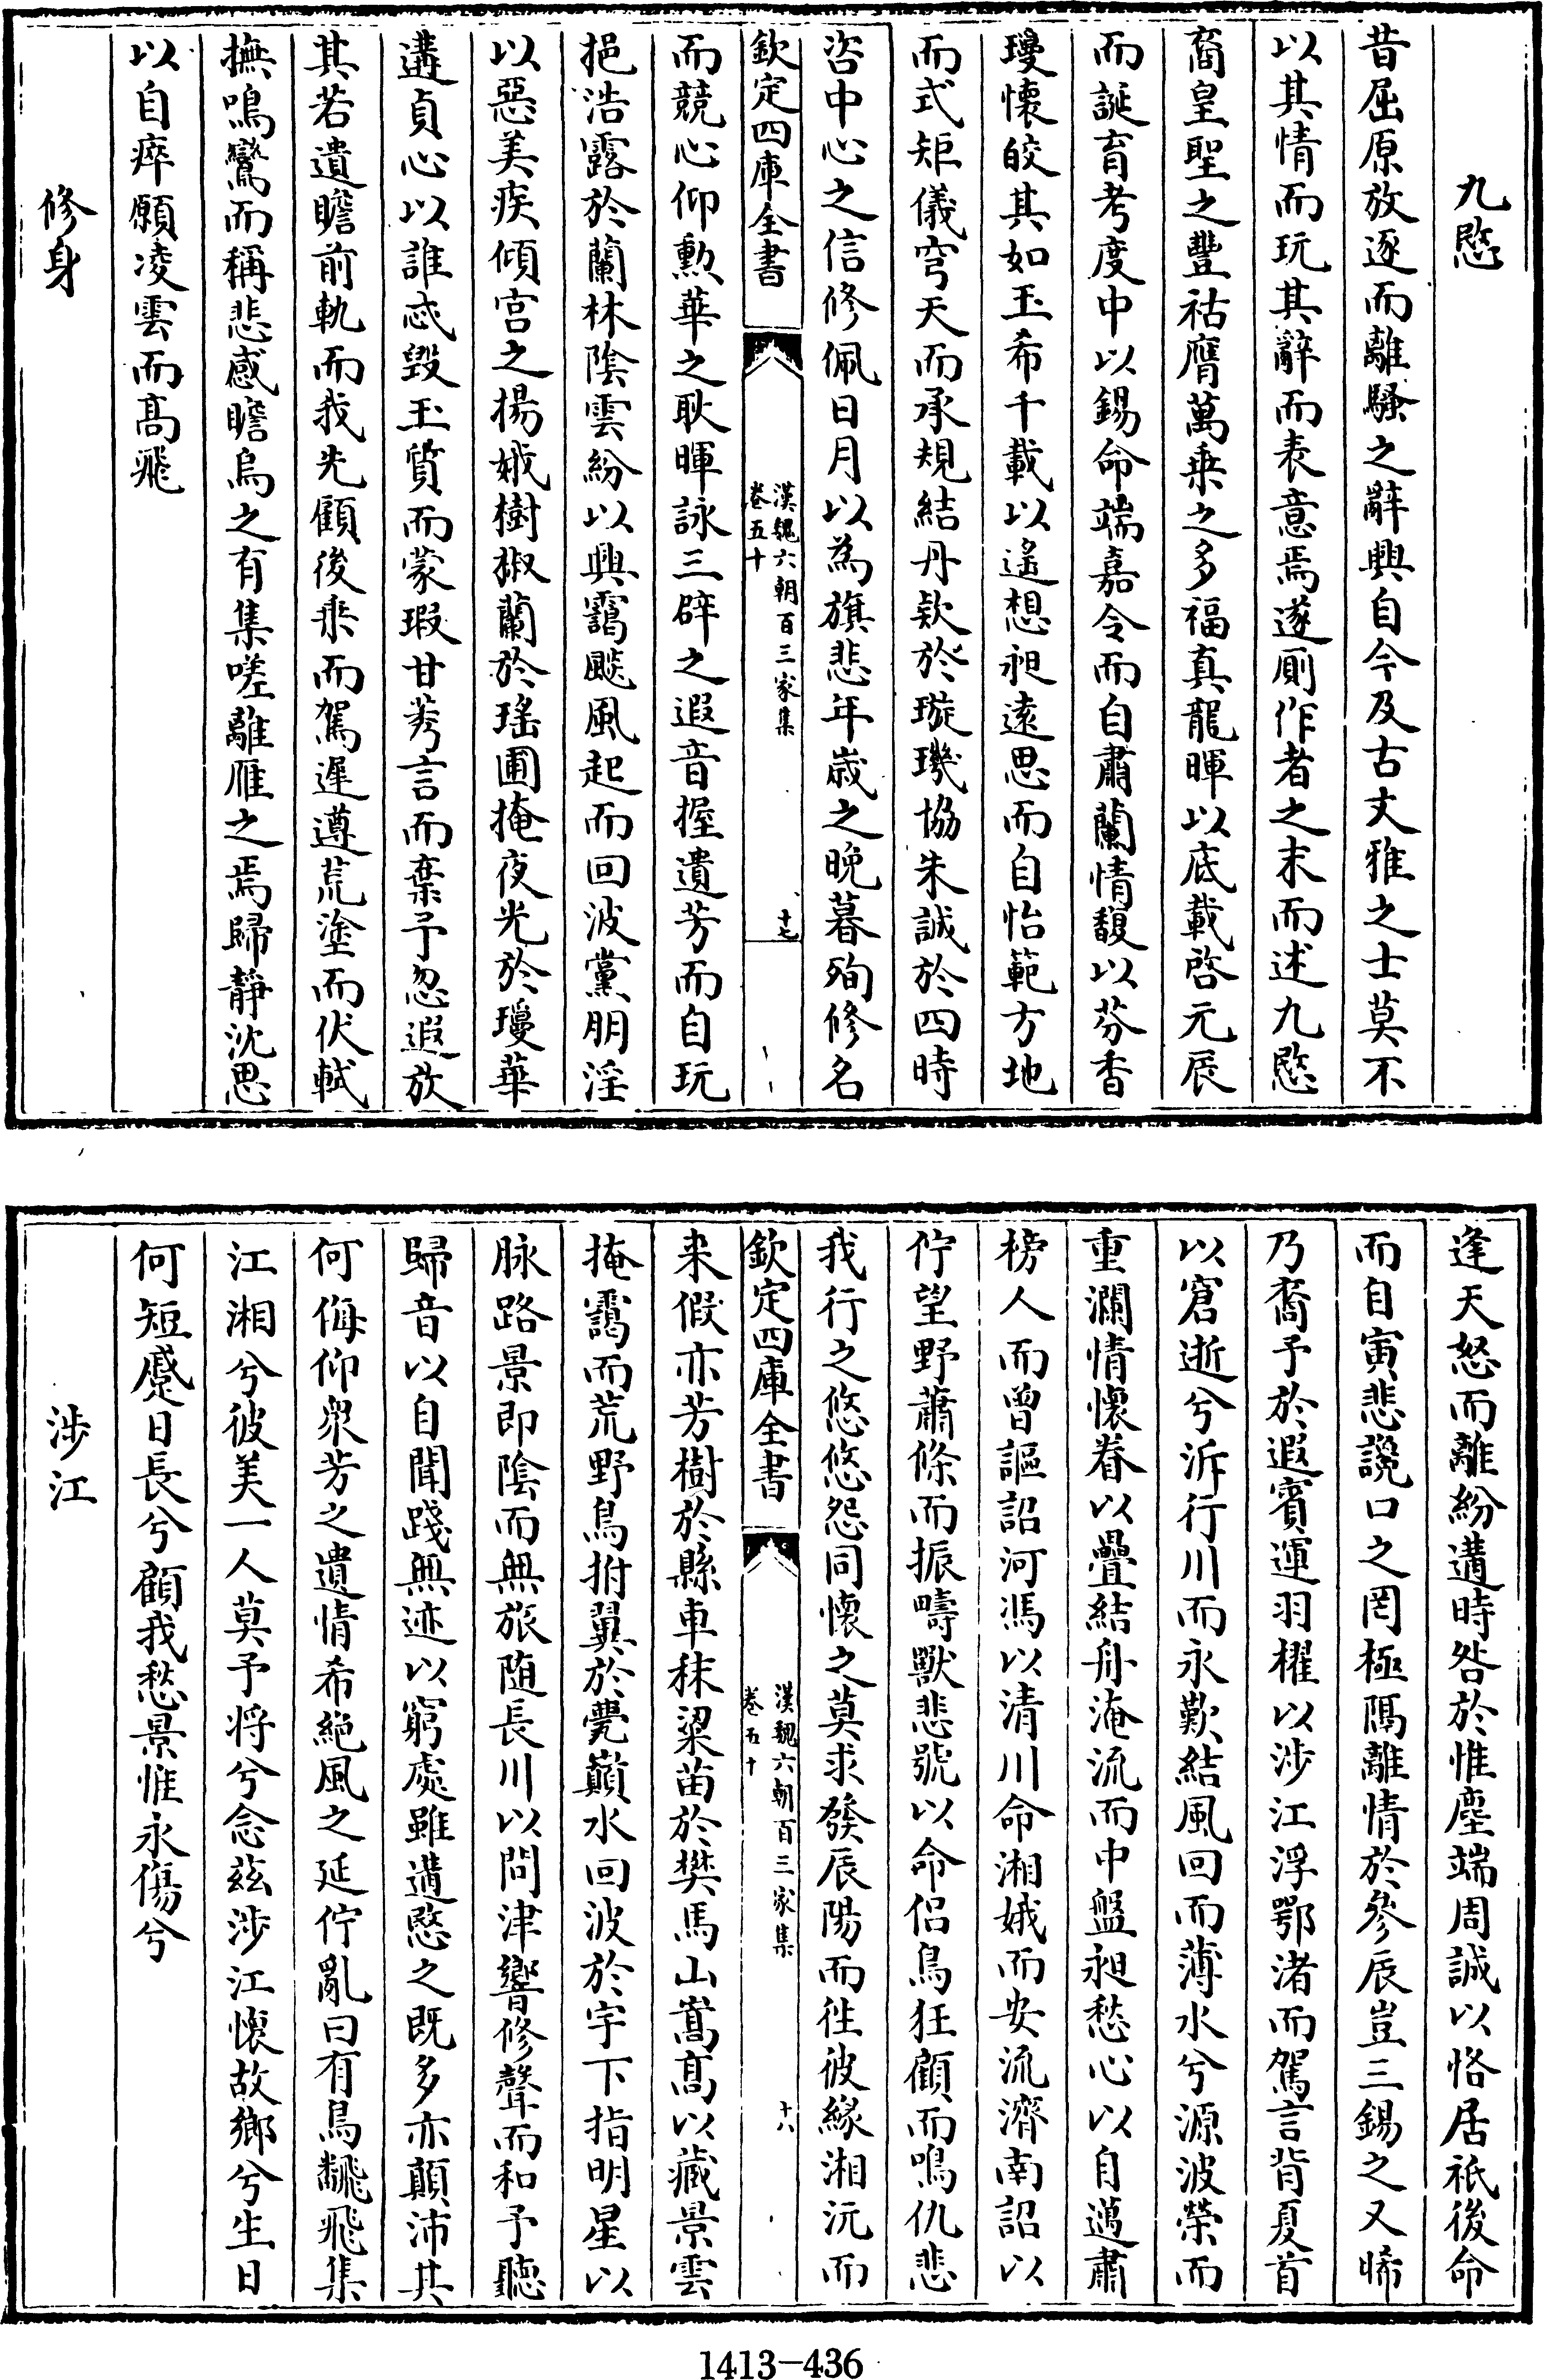 九愍
昔屈原放逐而離騷之辭興自今及古文雅之士莫不
以其情而玩其辭而表意焉遂廁作者之末而述九愍
裔皇聖之豐祜膺萬乗之多福真龍暉以底載啓元辰
而誕育考度中以錫命端嘉令而自肅蘭情馥以芬香
瓊懷皎其如玉希千載以遙想昶遠思而自怡範方地
而式矩儀穹天而承規結丹欵於璇璣協朱誠於四時
咨中心之信修佩日月以為旗悲年歳之晚暮殉修名
欽定四庫全書
漢魏六朝百三家集
卷五十
十七
而競心仰勲華之耿暉詠三辟之遐音握遺芳而自玩
挹浩露於蘭林陰雲紛以興靄飈風起而回波黨朋淫
以惡美疾傾宫之揚娥樹椒蘭於瑤圃掩夜光於瓊華
遘貞心以誰忒毀玉質而蒙瑕甘莠言而棄予忽遐放
其若遺瞻前軌而我先顧後乗而駕遲遵荒塗而伏軾
撫鳴鸞而稱悲感瞻烏之有集嗟離雁之焉歸靜沈思
以自瘁願凌雲而髙飛
修身
逢天怒而離紛遘時咎於惟塵端周誠以恪居祇後命
而自寅悲讒口之罔極隅離情於參辰豈三錫之又晞
乃裔予於遐賓運羽櫂以涉江浮鄂渚而駕言背夏首
以窘逝兮泝行川而永歎結風回而薄水兮源波榮而
重瀾情懷眷以疊結舟淹流而中盤昶愁心以自邁肅
榜人而曾謳詔河馮以清川命湘娥而安流濟南詔以
佇望野蕭條而振疇獸悲號以命侣鳥狂顧而鳴仇悲
我行之悠悠怨同懷之莫求發辰陽而往彼緣湘沅而
欽定四庫全書
漢魏六朝百三家集
卷五十
十八
来假亦芳樹於縣車秣粱苗於樊馬山嵩髙以藏景雲
掩靄而荒野鳥拊翼於甍巔水回波於宇下指明星以
脉路景即陰而無旅随長川以問津響修聲而和予聽
歸音以自聞踐無迹以窮處雖遘愍之既多亦顛沛其
何侮仰衆芳之遺情希絶風之延佇亂曰有鳥翻飛集
江湘兮彼美一人莫予将兮念兹涉江懷故鄉兮生日
何短蹙日長兮顧我愁景惟永傷兮
涉江
1413-436